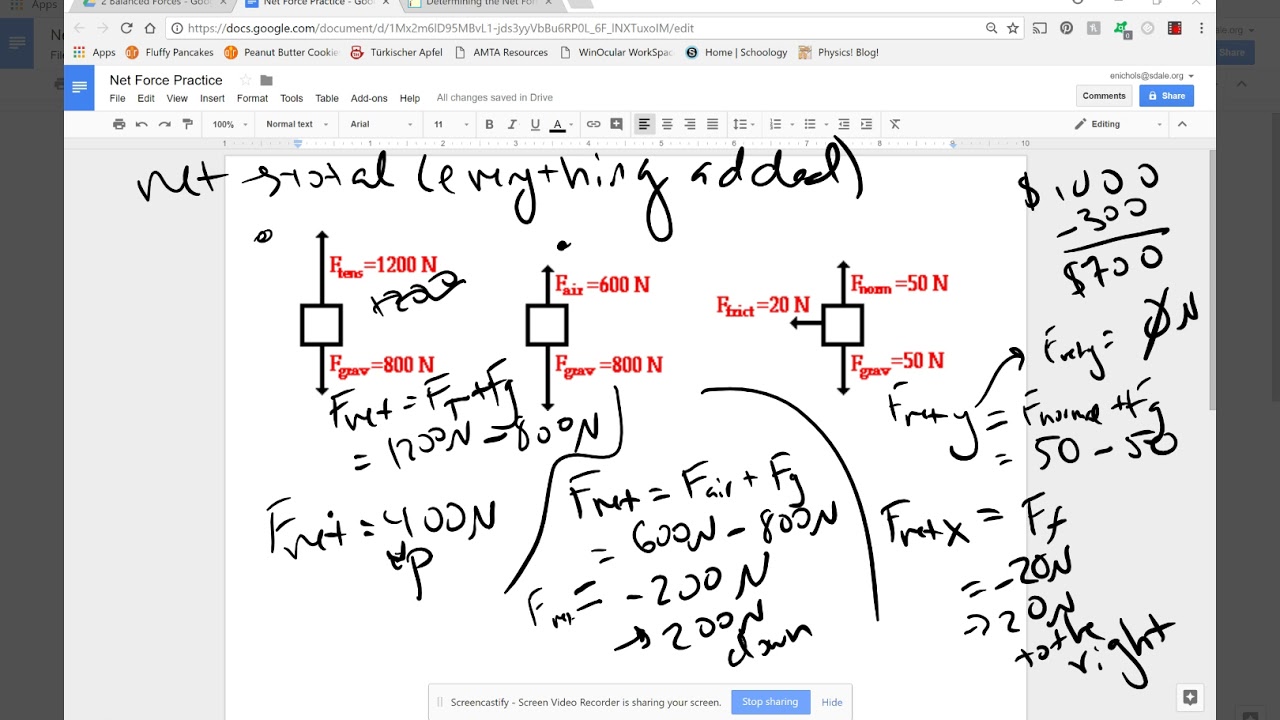 2 Balanced Forces - Goog
Net Force Practice - Google
Determining the Net Forc
Apps
https://docs.google.com/document/d/1Mx2m6lD95MBvL1-jds3yyVbBu6RP0L_6F_lNXTuxoIM/edit
Apps Fluffy Pancakes Peanut Butter Cookie Türkischer Apfel AMTA Resources WinOcular WorkSpac Home | Schoology Physics! Blog!
Net Force Practice
enichols@sdale.org
File Edit View Insert Format Tools Table Add-ons Help All changes saved in Drive
Comments Share
100% Normal text Arial 11 B I U A Editing
1 1 2 3 4 5 6 7 8 9 10
net → total (everything added)
$1000
-300
$700
Ftens=1200 N
+200
Fgrav=800 N
Fair=600 N
Fgrav=800 N
Fnorm=50 N
Ffrict=20 N
Fgrav=50 N
Fnet = FT+Fg
= 1200N - 800N
Fnet = 400N
up
Fnet = Fair + Fg
= 600N - 800N
Fnet = -200N
→ 200N
down
Fnety = ØN
Fnety = Fnormal + Fg
= 50 - 50
Fnetx = Ff
= -20N
→ 20N
to the
right
Screencastify - Screen Video Recorder is sharing your screen. Stop sharing Hide